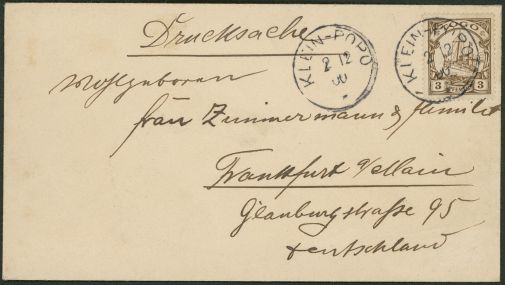 Drucksache
KLEIN-POPO
2 12
00
KLEIN-POPO
2 12
00
TOGO
3 3
Wohlgeboren
Zimmermann &
Frankfurt a/Main
Glauburgstraße 95
Deutschland